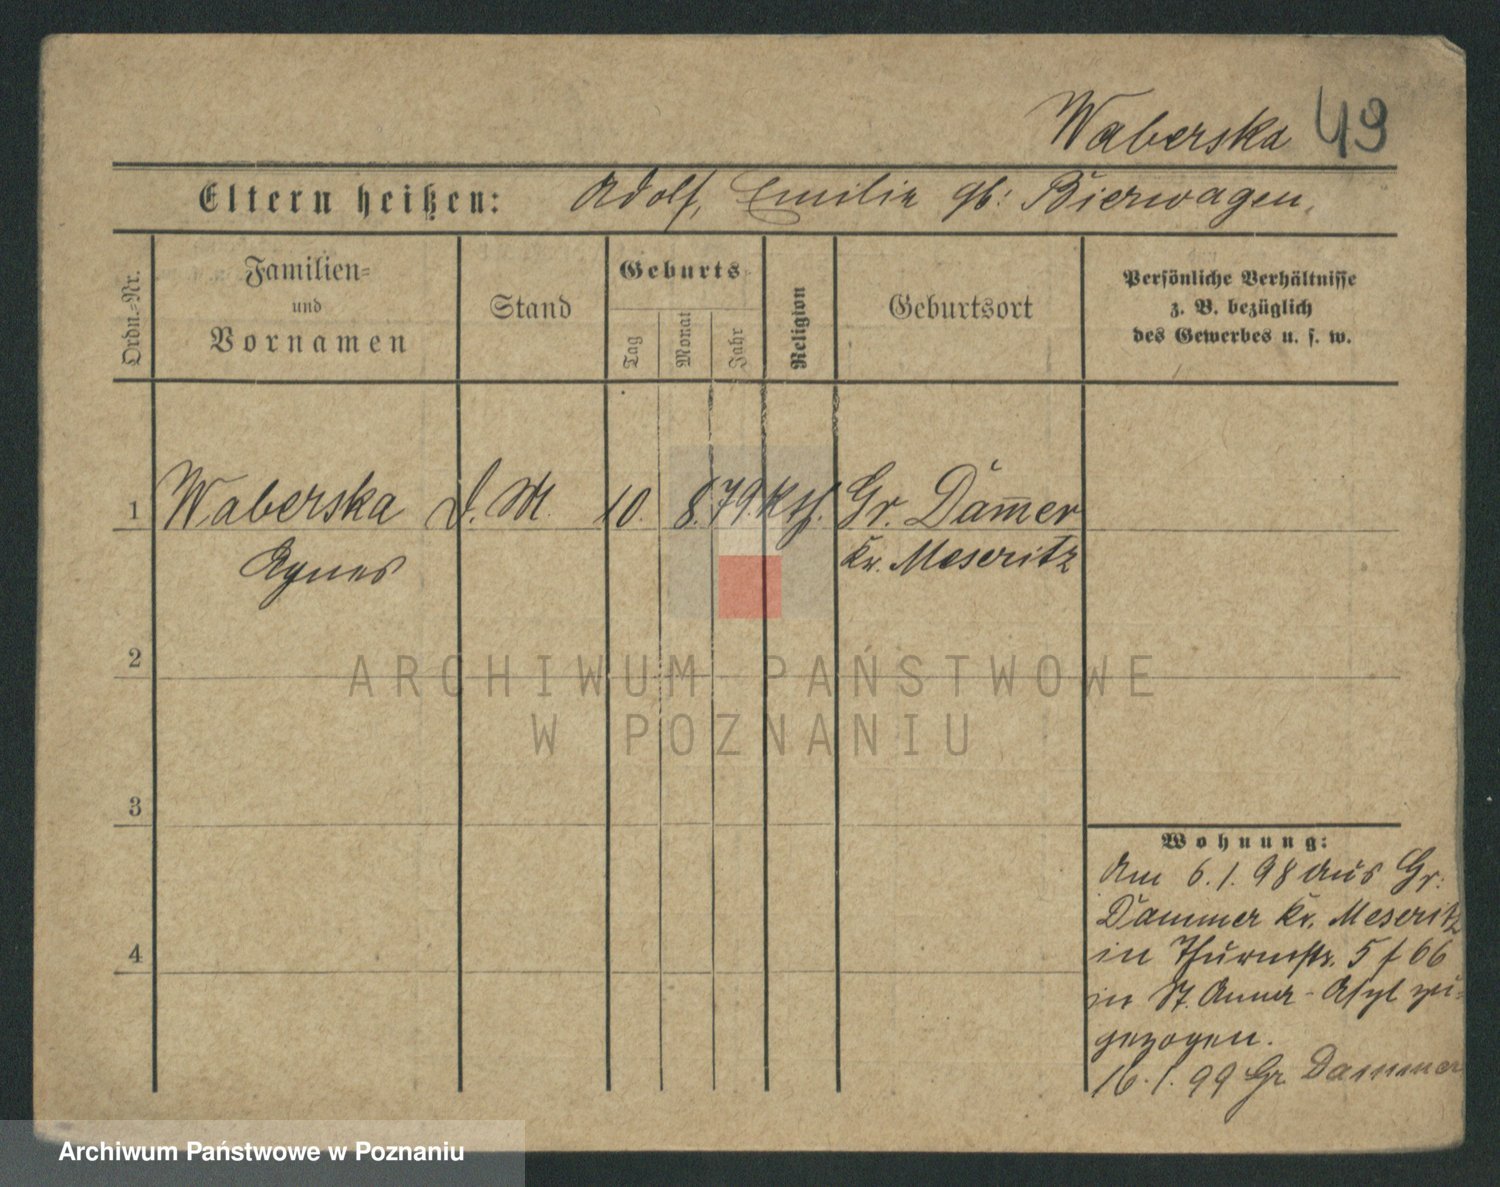 Waberska 49
Eltern heißen: Adolf, Emilie gb: Bierwagen.
Ordn.-Nr.
Familien-
und
Vornamen
Stand
Geburts-
Tag
Monat
Jahr
Religion
Geburtsort
Persönliche Verhältnisse
z. B. bezüglich
des Gewerbes u. s. w.
1 Waberska D. M. 10. 8. 79. kth. Gr. Dam̅er
Agnes Kr. Meseritz
2
3
4
Wohnung:
Am 6.1.98 aus Gr.
Dammer Kr. Meseritz
in Thurmstr. 5 f 66
in St. Anna-Asyl zu-
gezogen.
16.1.99 Gr Dammer
ARCHIWUM PAŃSTWOWE
W POZNANIU
Archiwum Państwowe w Poznaniu